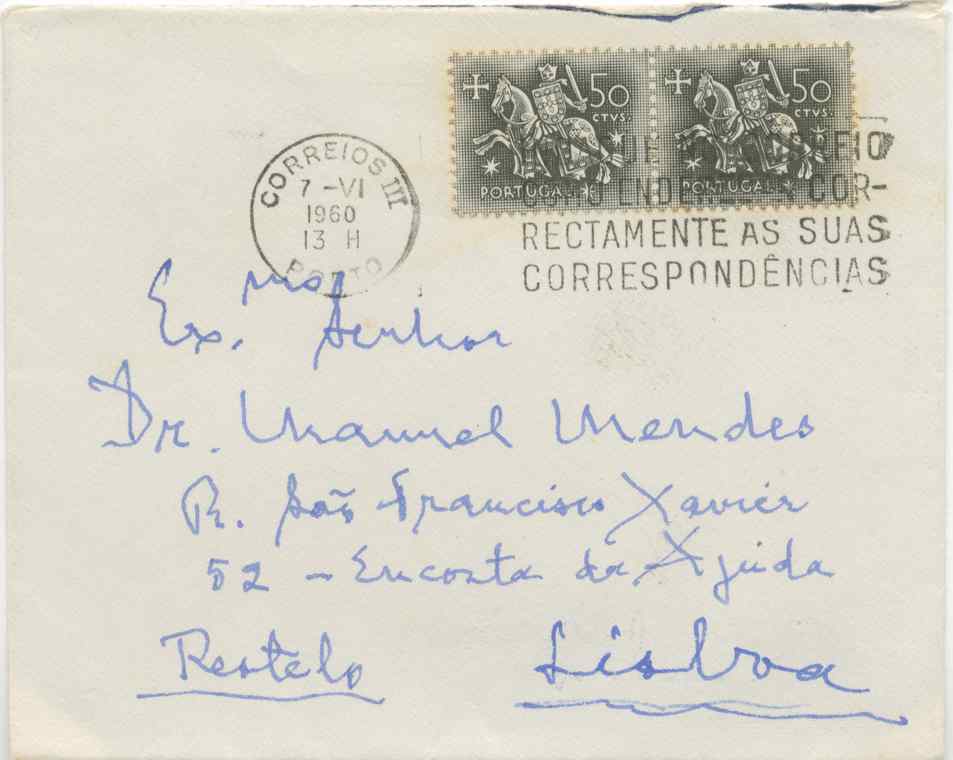 50 50
CTVS. CTVS.
PORTUGAL PORTUGAL
CORREIOS III
7 -VI
1960
13 H
PORTO
CORREIO
COMO ENDEREÇAR COR-
RECTAMENTE AS SUAS
CORRESPONDÊNCIAS
Ex.mo Senhor
Dr. Manuel Mendes
R. São Francisco Xavier
52 - Encosta da Ajuda
Restelo Lisboa